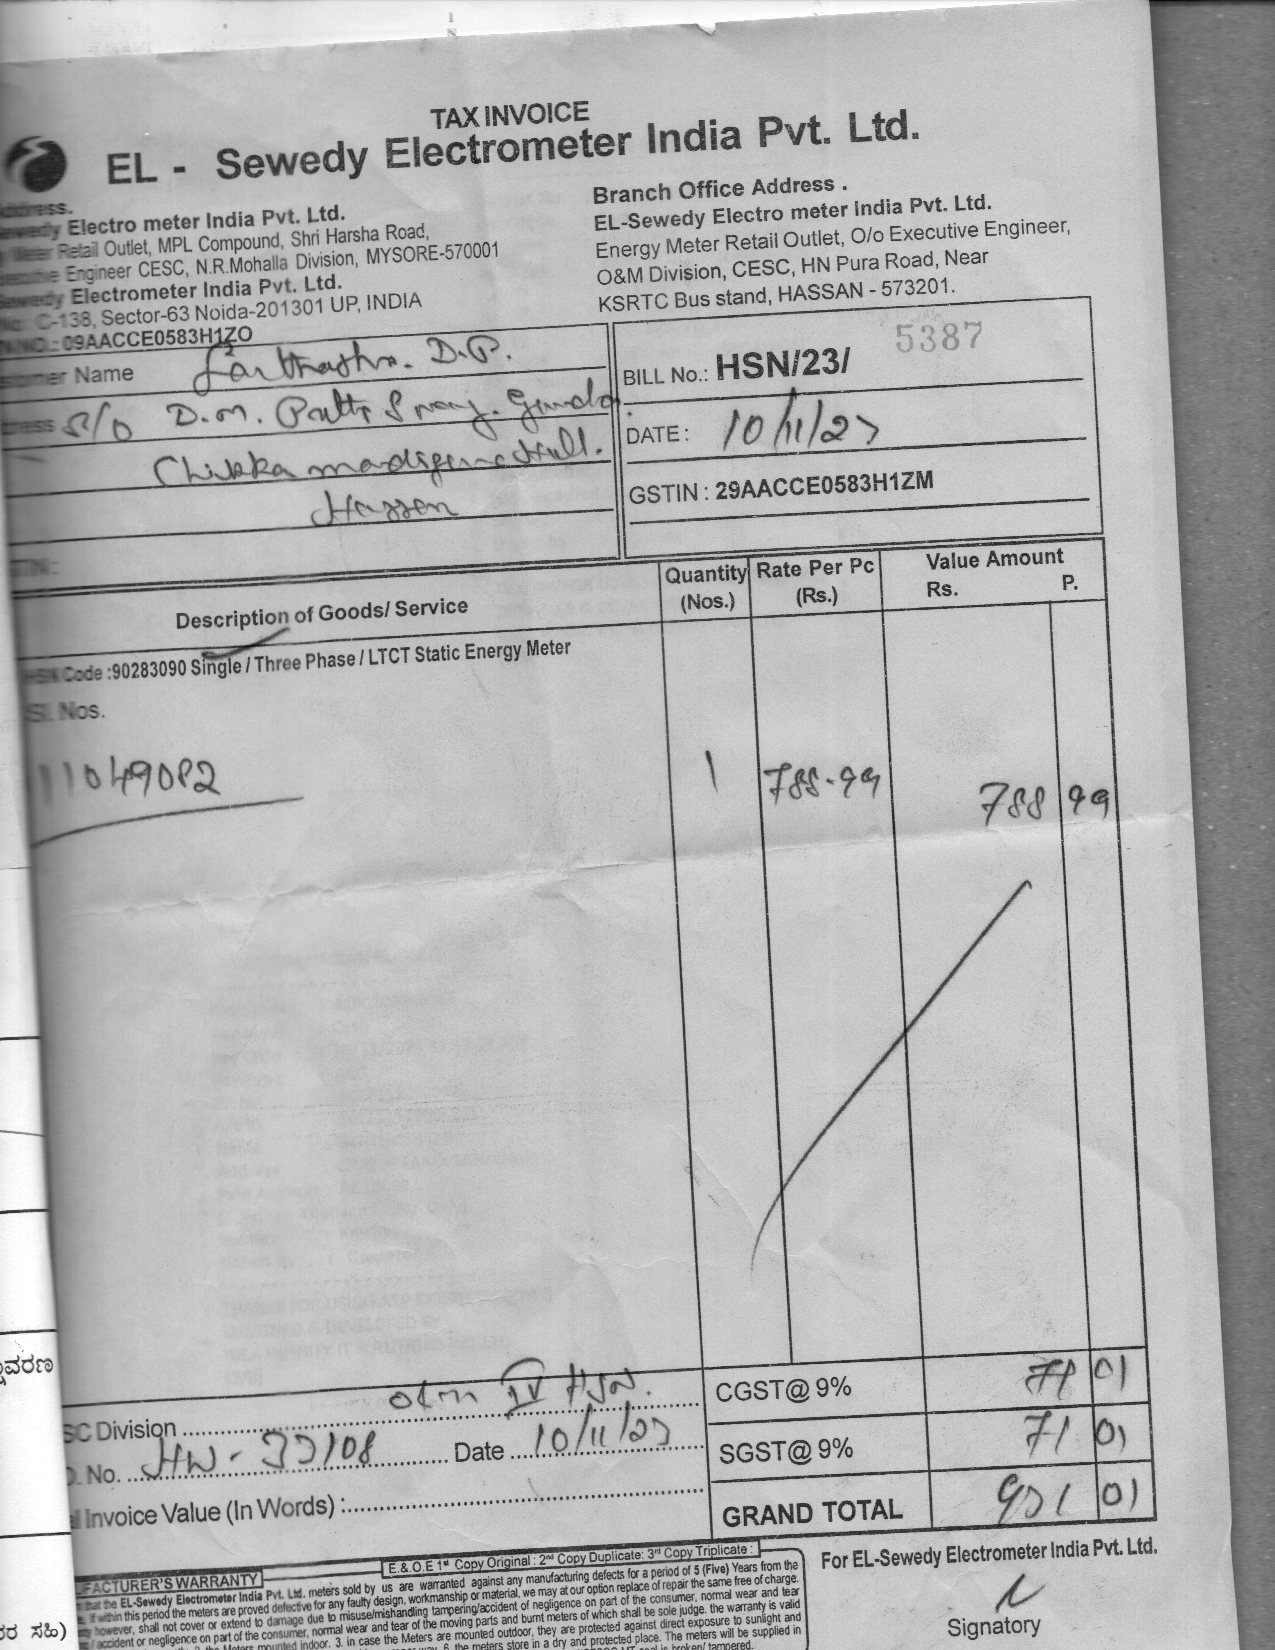 TAX INVOICE
EL - Sewedy Electrometer India Pvt. Ltd.
Address.
Sewedy Electro meter India Pvt. Ltd.
Meter Retail Outlet, MPL Compound, Shri Harsha Road,
Executive Engineer CESC, N.R.Mohalla Division, MYSORE-570001
Sewedy Electrometer India Pvt. Ltd.
C-138, Sector-63 Noida-201301 UP, INDIA
NO.: 09AACCE0583H1ZO
Branch Office Address .
EL-Sewedy Electro meter India Pvt. Ltd.
Energy Meter Retail Outlet, O/o Executive Engineer,
O&M Division, CESC, HN Pura Road, Near
KSRTC Bus stand, HASSAN - 573201.
stomer Name D.P.
ress S/o D.M. Gowda.
Hassan
TIN:
BILL No.: HSN/23/ 5387
DATE: 10/11/23
GSTIN : 29AACCE0583H1ZM
Description of Goods/ Service
Quantity (Nos.)
Rate Per Pc (Rs.)
Value Amount
Rs. P.
HSN Code :90283090 Single / Three Phase / LTCT Static Energy Meter
Sl. Nos.
11049082 1 788-99 788 99
SC Division O&M IV HSN.
CGST@ 9% 71 01
. No. HW - 33108 Date 10/11/23
SGST@ 9% 71 01
l Invoice Value (In Words) :
GRAND TOTAL 931 01
E.& O.E 1st Copy Original : 2nd Copy Duplicate: 3rd Copy Triplicate :
For EL-Sewedy Electrometer India Pvt. Ltd.
Signatory
FACTURER'S WARRANTY
that the EL-Sewedy Electrometer India Pvt. Ltd. meters sold by us are warranted against any manufacturing defects for a period of 5 (Five) Years from the
If within this period the meters are proved defective for any faulty design, workmanship or material, we may at our option replace of repair the same free of charge.
however, shall not cover or extend to damage due to misuse/mishandling tampering/accident of negligence on part of the consumer, normal wear and tear
accident or negligence on part of the consumer, normal wear and tear of the moving parts and burnt meters of which shall be sole judge. the warranty is valid
the Meters mounted indoor. 3. in case the Meters are mounted outdoor, they are protected against direct exposure to sunlight and
6. the meters store in a dry and protected place. The meters will be supplied in
seal is broken/ tampered.
ವರಣ
ರ ಸಹಿ)